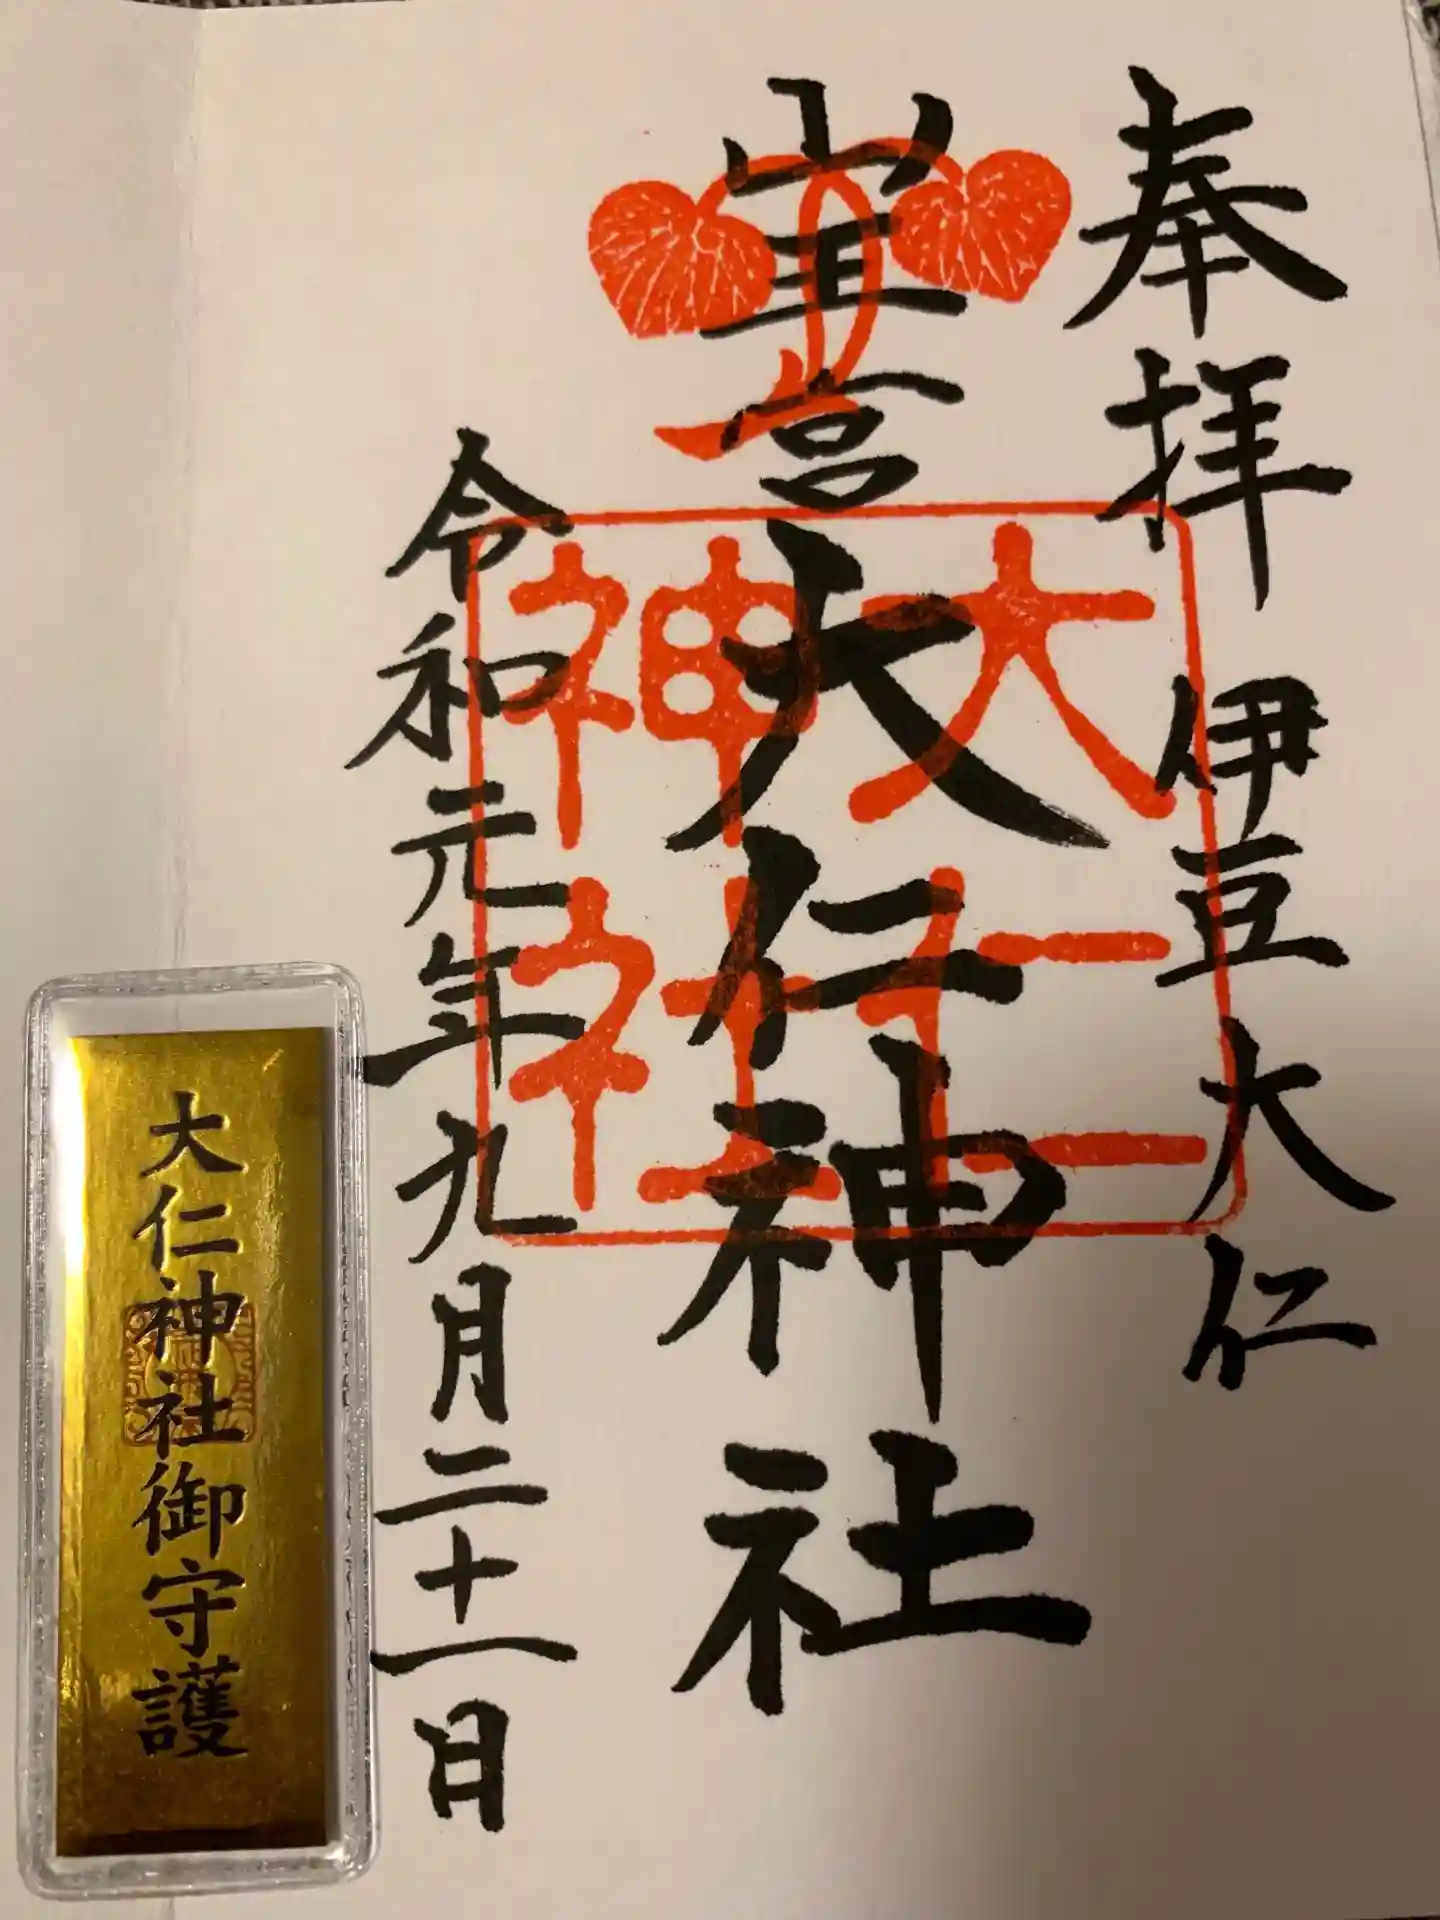 奉拝 伊豆大仁
山王宮大仁神社
大仁
神社
令和元年九月二十一日
大仁神社御守護